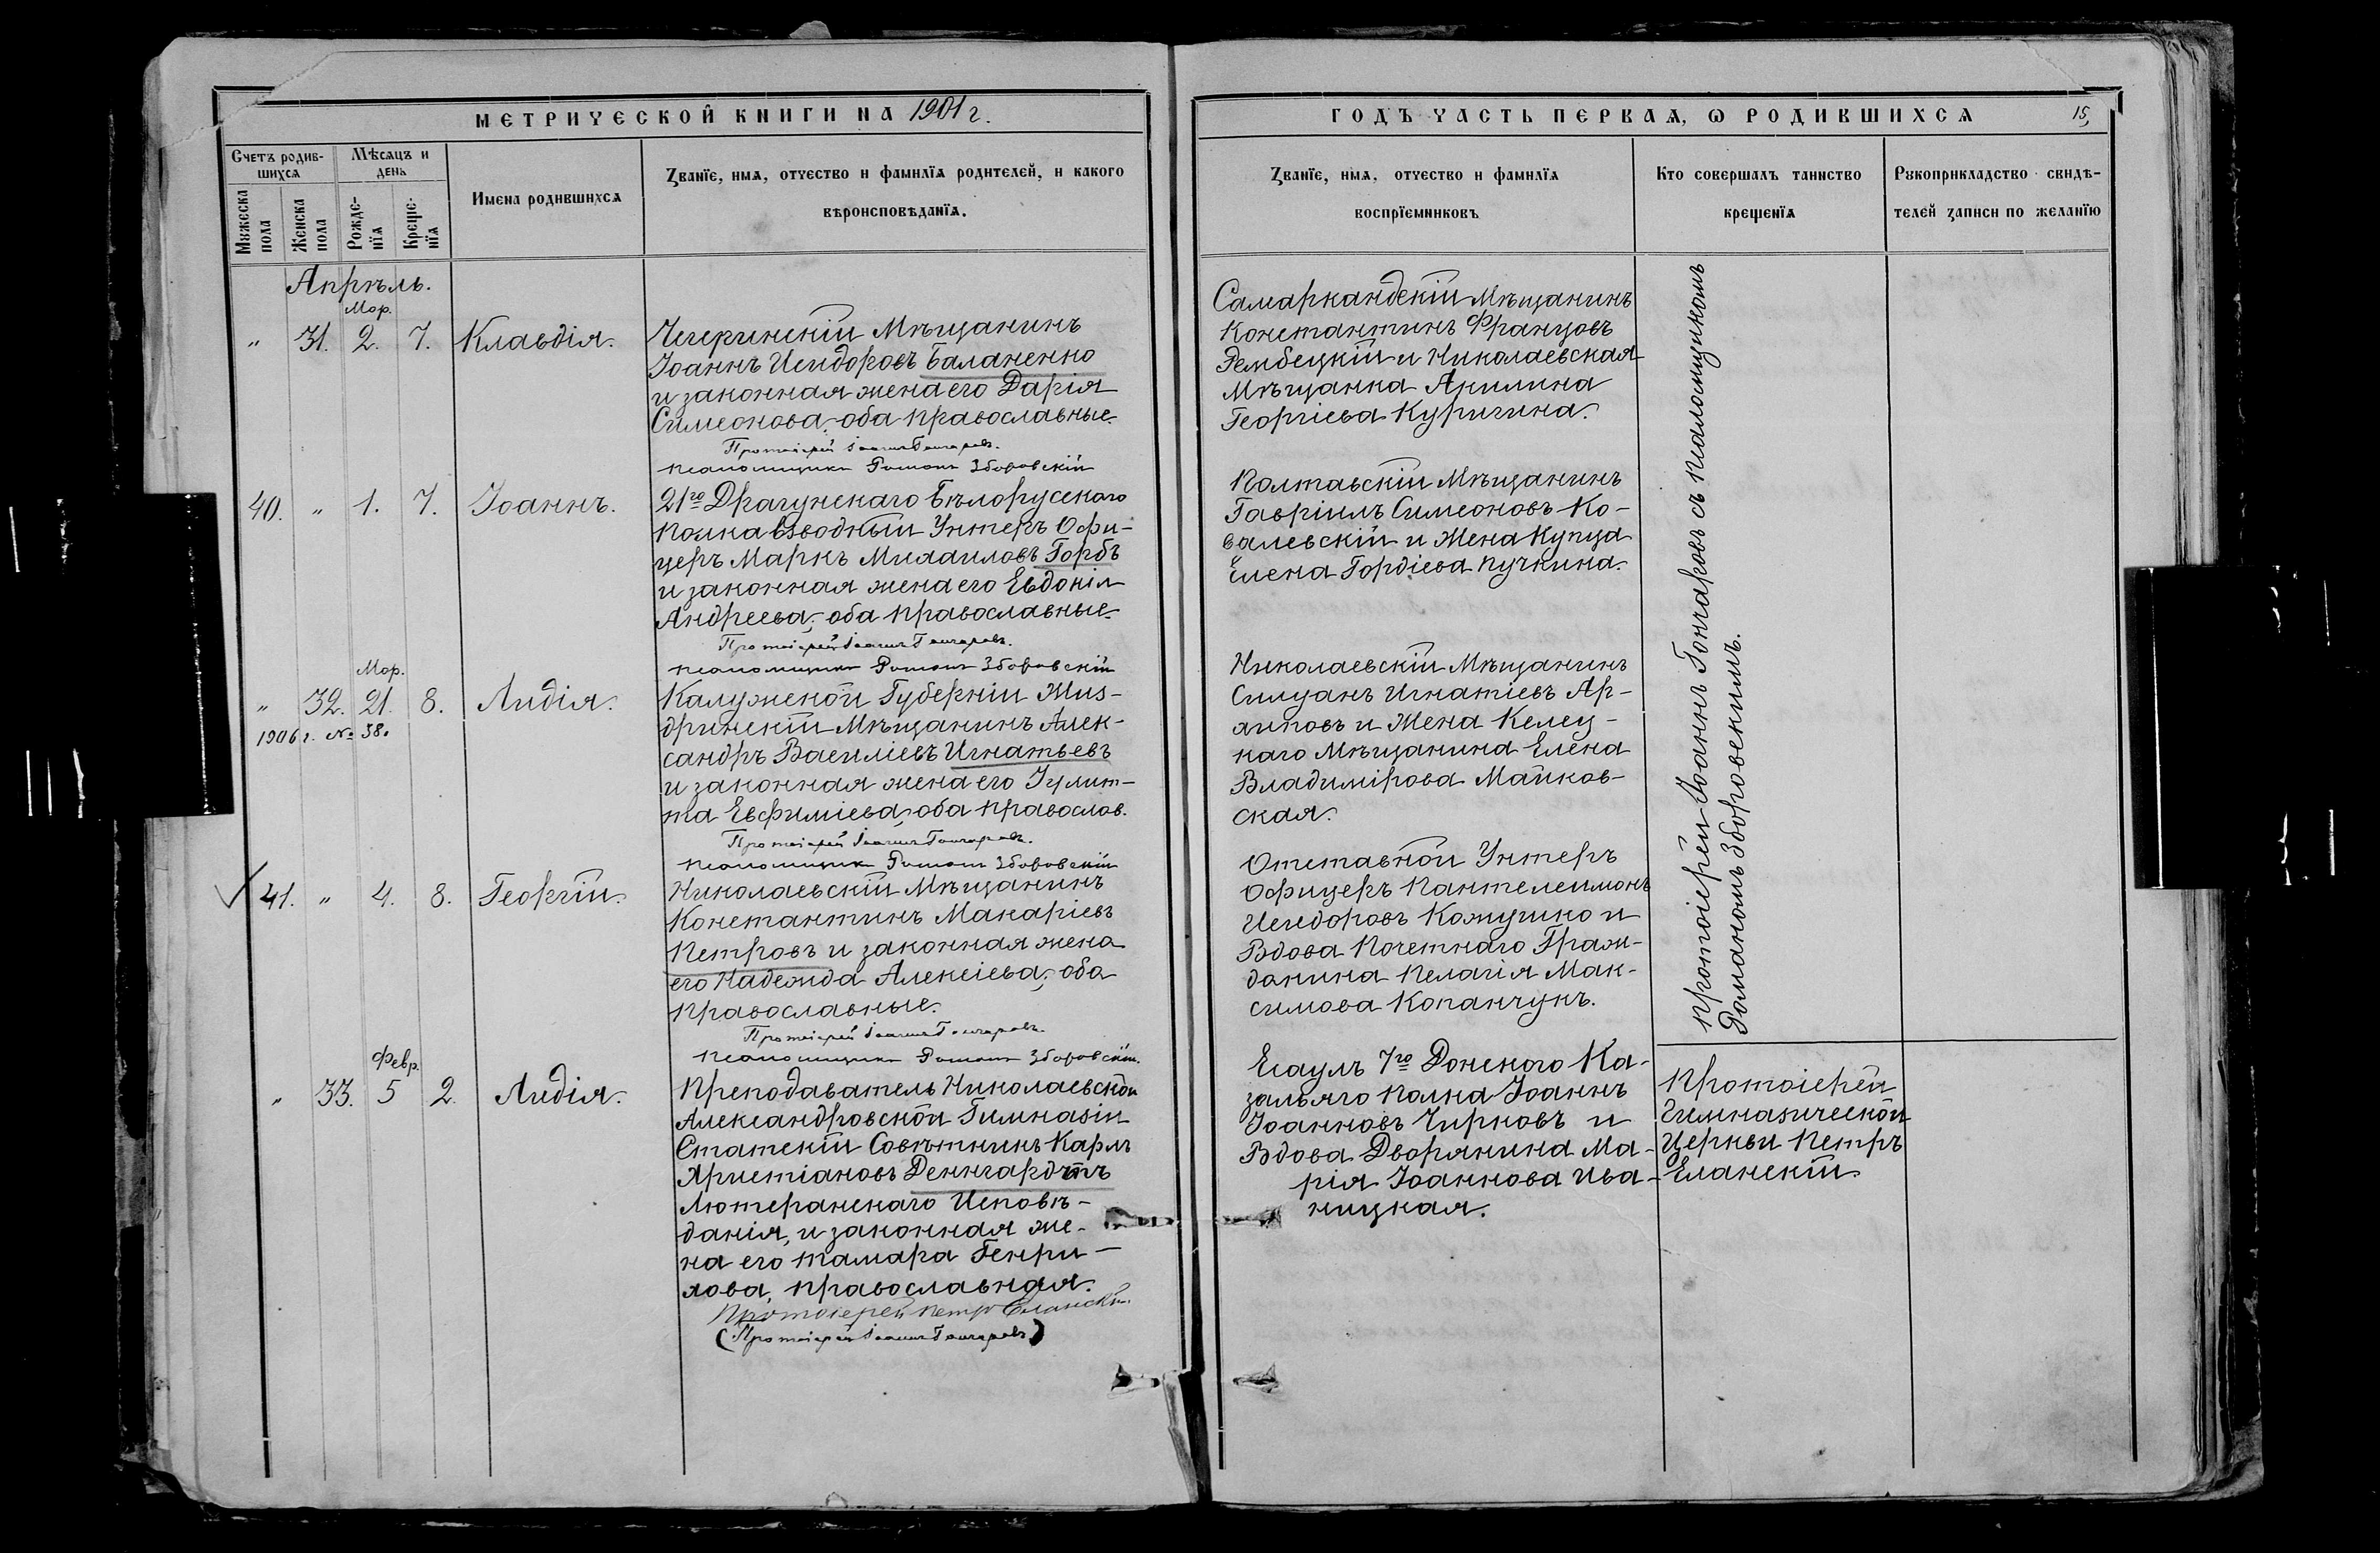 МЕТРИЧЕСКОЙ КНИГИ НА 1901 г.
ГОДЪ ЧАСТЬ ПЕРВАЯ, Ѡ РОДИВШИХСЯ
15
Счетъ родив-
шихся
Мѣсяцъ и
день
Мужеска
пола
Женска
пола
Рожде-
нїя
Креще-
нїя
Имена родившихся
Званїе, имя, отчество и фамилїя родителей, и какого
вѣроисповѣданїя.
Званїе, имя, отчество и фамилїя
воспрїемниковъ
Кто совершалъ таинство
крещенїя
Рукоприкладство свидѣ-
телей записи по желанїю
Апрѣль.
Мар.
„ 31. 2. 7. Клавдія.
Чигиринскій Мѣщанинъ
Іоаннъ Исидоровъ Баланенко
и законная жена его Дарія
Симеонова, оба православные.
Протоіерей Іоаннъ Гончаровъ.
Псаломщикъ Романъ Зборовскій
Самаркандскій Мѣщанинъ
Константинъ Францовъ
Рембецкій и Николаевская
Мѣщанка Акилина
Георгіева Куригина.
40. „ 1. 7. Іоаннъ.
21го Драгунскаго Бѣлорусскаго
Полка Взводный Унтеръ Офи-
церъ Маркъ Михаиловъ Горбъ
и законная жена его Евдокія
Андреева, оба православные.
Протоіерей Іоаннъ Гончаровъ.
Псаломщикъ Романъ Зборовскій
Полтавскій Мѣщанинъ
Гавріилъ Симеоновъ Ко-
валевскій и Жена Купца
Елена Гордіева Пучкина.
Мар.
„ 32. 21. 8. Лидія.
1906 г. № 58.
Калужской Губерніи Жиз-
дринскій Мѣщанинъ Алек-
сандръ Василіевъ Игнатьевъ
и законная жена его Іулит-
та Евфиміева, оба православ.
Протоіерей Іоаннъ Гончаровъ.
Псаломщикъ Романъ Зборовскій
Николаевскій Мѣщанинъ
Силуанъ Игнатіевъ Ар-
хиповъ и Жена Келец-
каго Мѣщанина Елена
Владимірова Майков-
ская.
41. „ 4. 8. Георгій.
Николаевскій Мѣщанинъ
Константинъ Макаріевъ
Петровъ и законная жена
его Надежда Алексіева, оба
православные.
Протоіерей Іоаннъ Гончаровъ.
Псаломщикъ Романъ Зборовскій.
Отставной Унтеръ
Офицеръ Пантелеимонъ
Исидоровъ Кожушко и
Вдова Почетнаго Граж-
данина Пелагія Мак-
симова Копанчукъ.
Протоіерей Іоаннъ Гончаровъ съ псаломщикомъ
Романомъ Зборовскимъ.
Февр.
„ 33. 5 2. Лидія.
Преподаватель Николаевской
Александровской Гимназіи
Статскій Совѣтникъ Карлъ
Христіановъ Денгардтъ
Лютеранскаго Исповѣ-
данія, и законная же-
на его Тамара Генри-
хова, православная.
Протоіерей Петръ Еланскій
(Протоіерей Іоаннъ Гончаровъ)
Есаулъ 7го Донского Ка-
зачьяго полка Іоаннъ
Іоанновъ Чирковъ и
Вдова Дворянина Ма-
рія Іоаннова Ива-
ницкая.
Протоіерей
Гимназической
Церкви Петръ
Еланскій.